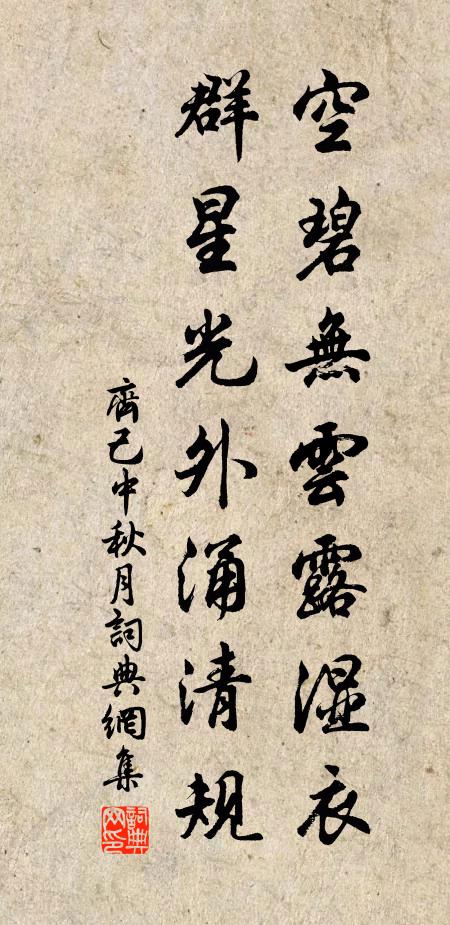 空碧無雲露湿衣
群星光外涌清規
齊己中秋月詞典網集
詞典網印